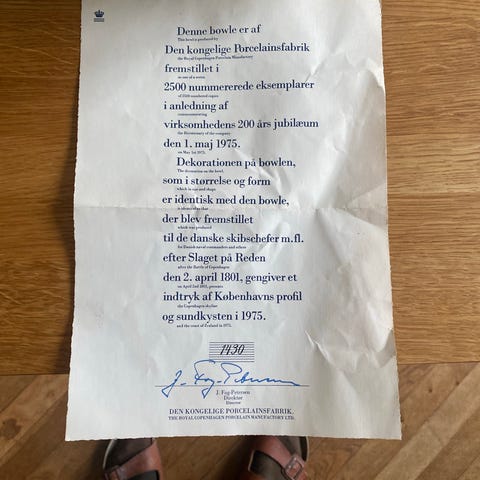 Denne bowle er af
This bowl is produced by
Den kongelige Porcelainsfabrik
the Royal Copenhagen Porcelain Manufactory
fremstillet i
as one of a series
2500 nummererede eksemplarer
of 2500 numbered copies
i anledning af
commemorating
virksomhedens 200 års jubilæum
the Bicentenary of the company
den 1. maj 1975.
on May 1st 1975.
Dekorationen på bowlen,
The decoration on the bowl,
som i størrelse og form
which in size and shape
er identisk med den bowle,
is identical to that
der blev fremstillet
which was produced
til de danske skibschefer m.fl.
for Danish naval commanders and others
efter Slaget på Reden
after the Battle of Copenhagen
den 2. april 1801, gengiver et
on April 2nd 1801, presents
indtryk af Københavns profil
the Copenhagen skyline
og sundkysten i 1975.
and the coast of Zealand in 1975.
1430
J. Fog-Petersen
J. Fog-Petersen
Direktør
Director
DEN KONGELIGE PORCELAINSFABRIK.
THE ROYAL COPENHAGEN PORCELAIN MANUFACTORY LTD.